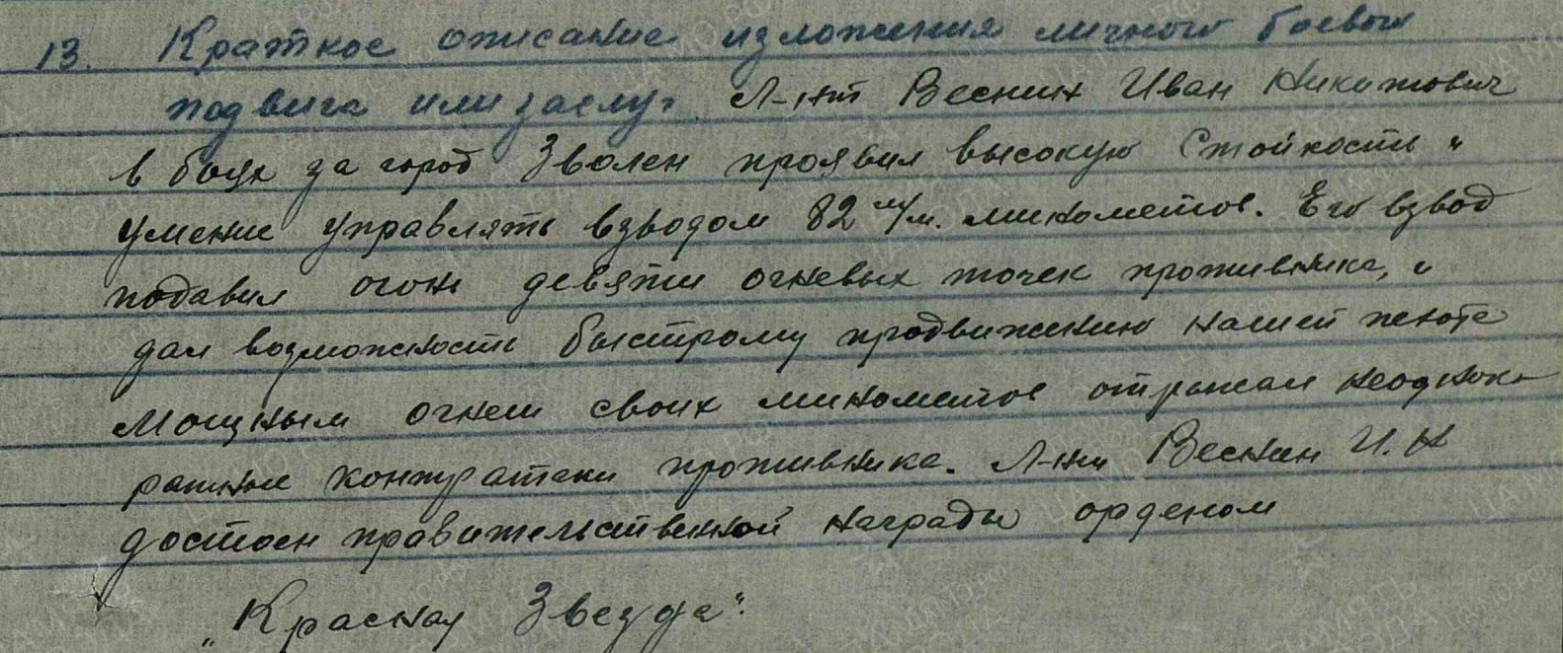 13. Краткое описание изложения личного боевого
подвига или заслуг Л-нт Веснин Иван Никитович
в боях за город Зволен проявил высокую стойкость и
умение управлять взводом 82 м/м. минометов. Его взвод
подавил огонь девяти огневых точек противника, и
дал возможность быстрому продвижению нашей пехоте
Мощным огнем своих минометов отражал неоднок-
ратные контратаки противника. Л-нт Веснин И.Н
достоин правительственной награды орденом
„Красная Звезда".